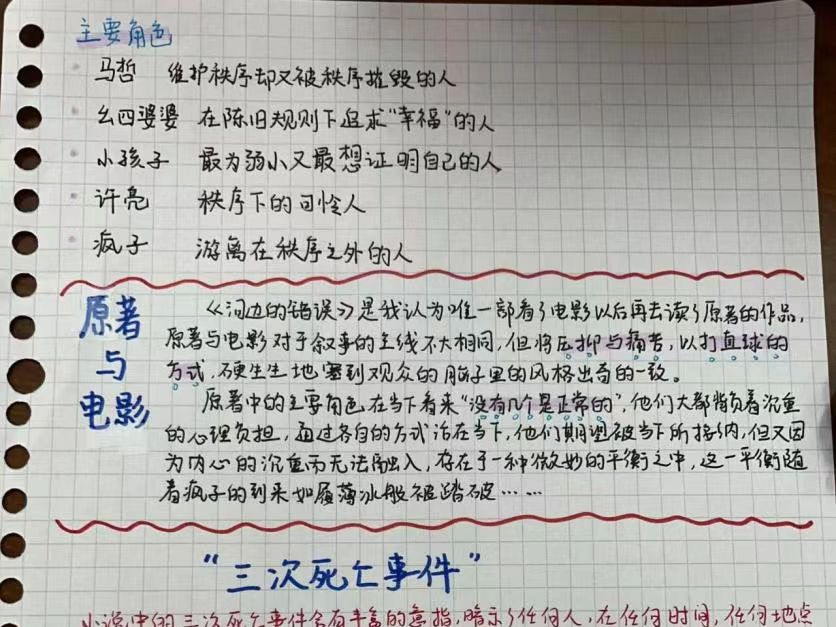 主要角色
马哲 维护秩序却又被秩序摧毁的人
幺四婆婆 在陈旧规则下追求“幸福”的人
小孩子 最为弱小又最想证明自己的人
许亮 秩序下的可怜人
疯子 游离在秩序之外的人
原著
与
电影
《河边的错误》是我认为唯一部看了电影以后再去读了原著的作品,
原著与电影对于叙事的主线不大相同,但将压抑与痛苦,以打直球的
方式,硬生生地塞到观众的脑子里的风格出奇的一致。
原著中的主要角色在当下看来“没有几个是正常的”,他们大都背负着沉重
的心理负担,通过各自的方式活在当下,他们期望被当下所接纳,但又因
为内心的沉重而无法融入,存在于一种微妙的平衡之中,这一平衡随
着疯子的到来如履薄冰般被踏破……
“三次死亡事件”
小说中的三次死亡事件含有丰富的意指,暗示了任何人,在任何时间,任何地点